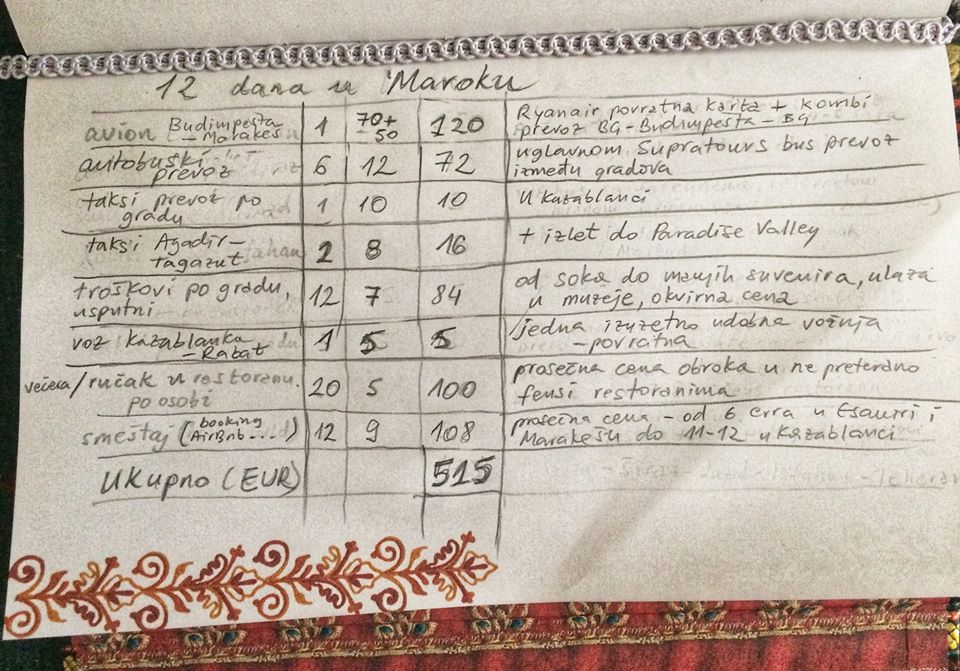 12 dana u Maroku
avion Budimpešta - Marakeš 1 70+50 120 Ryanair povratna karta + kombi
prevoz BG-Budimpešta-BG
autobuski prevoz 6 12 72 uglavnom Supratours bus prevoz
između gradova
taksi prevoz po gradu 1 10 10 u Kazablanci
taksi Agadir-Tagazut 2 8 16 + izlet do Paradise Valley
troškovi po gradu, usputni 12 7 84 od soka do manjih suvenira, ulaza
u muzeje, okvirna cena
voz Kazablanka - Rabat 1 5 5 jedna izuzetno udobna vožnja
- povratna
večera/ručak u restoranu po osobi 20 5 100 prosečna cena obroka u ne preterano
fensi restoranima
smeštaj (booking AirBnb....) 12 9 108 prosečna cena - od 6 evra u Esauiri i
Marakešu do 11-12 u Kazablanci
Ukupno (EUR) 515